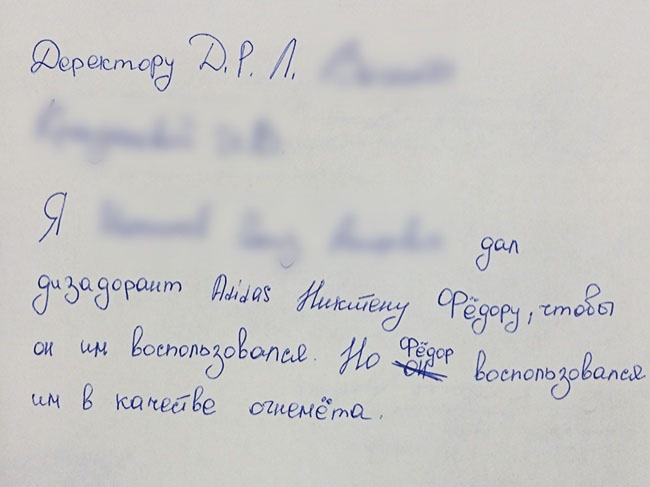 Деректору Д.Р.Л.
Я дал
дизадорант Adidas Никитену Фёдору, чтобы
он им воспользовался. Но Фёдор он воспользовался
им в качестве огнемёта.